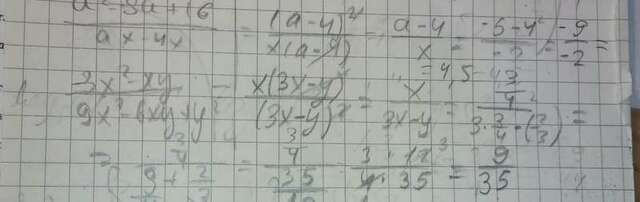 a² - 8a + 16 / ax - 4x = (a-4)² / x(a-4) = a-4 / x = -5-4 / -2 = -9 / -2 =
= 4,5
3x² - xy / 9x² - 6xy + y² = x(3x-y) / (3x-y)² = x / 3x-y = 3/4 / 3·3/4 - (-2/3) =
= 3/4 / 9/4 + 2/3 = 3/4 / 35/12 = 3/4 · 12³/35 = 9/35